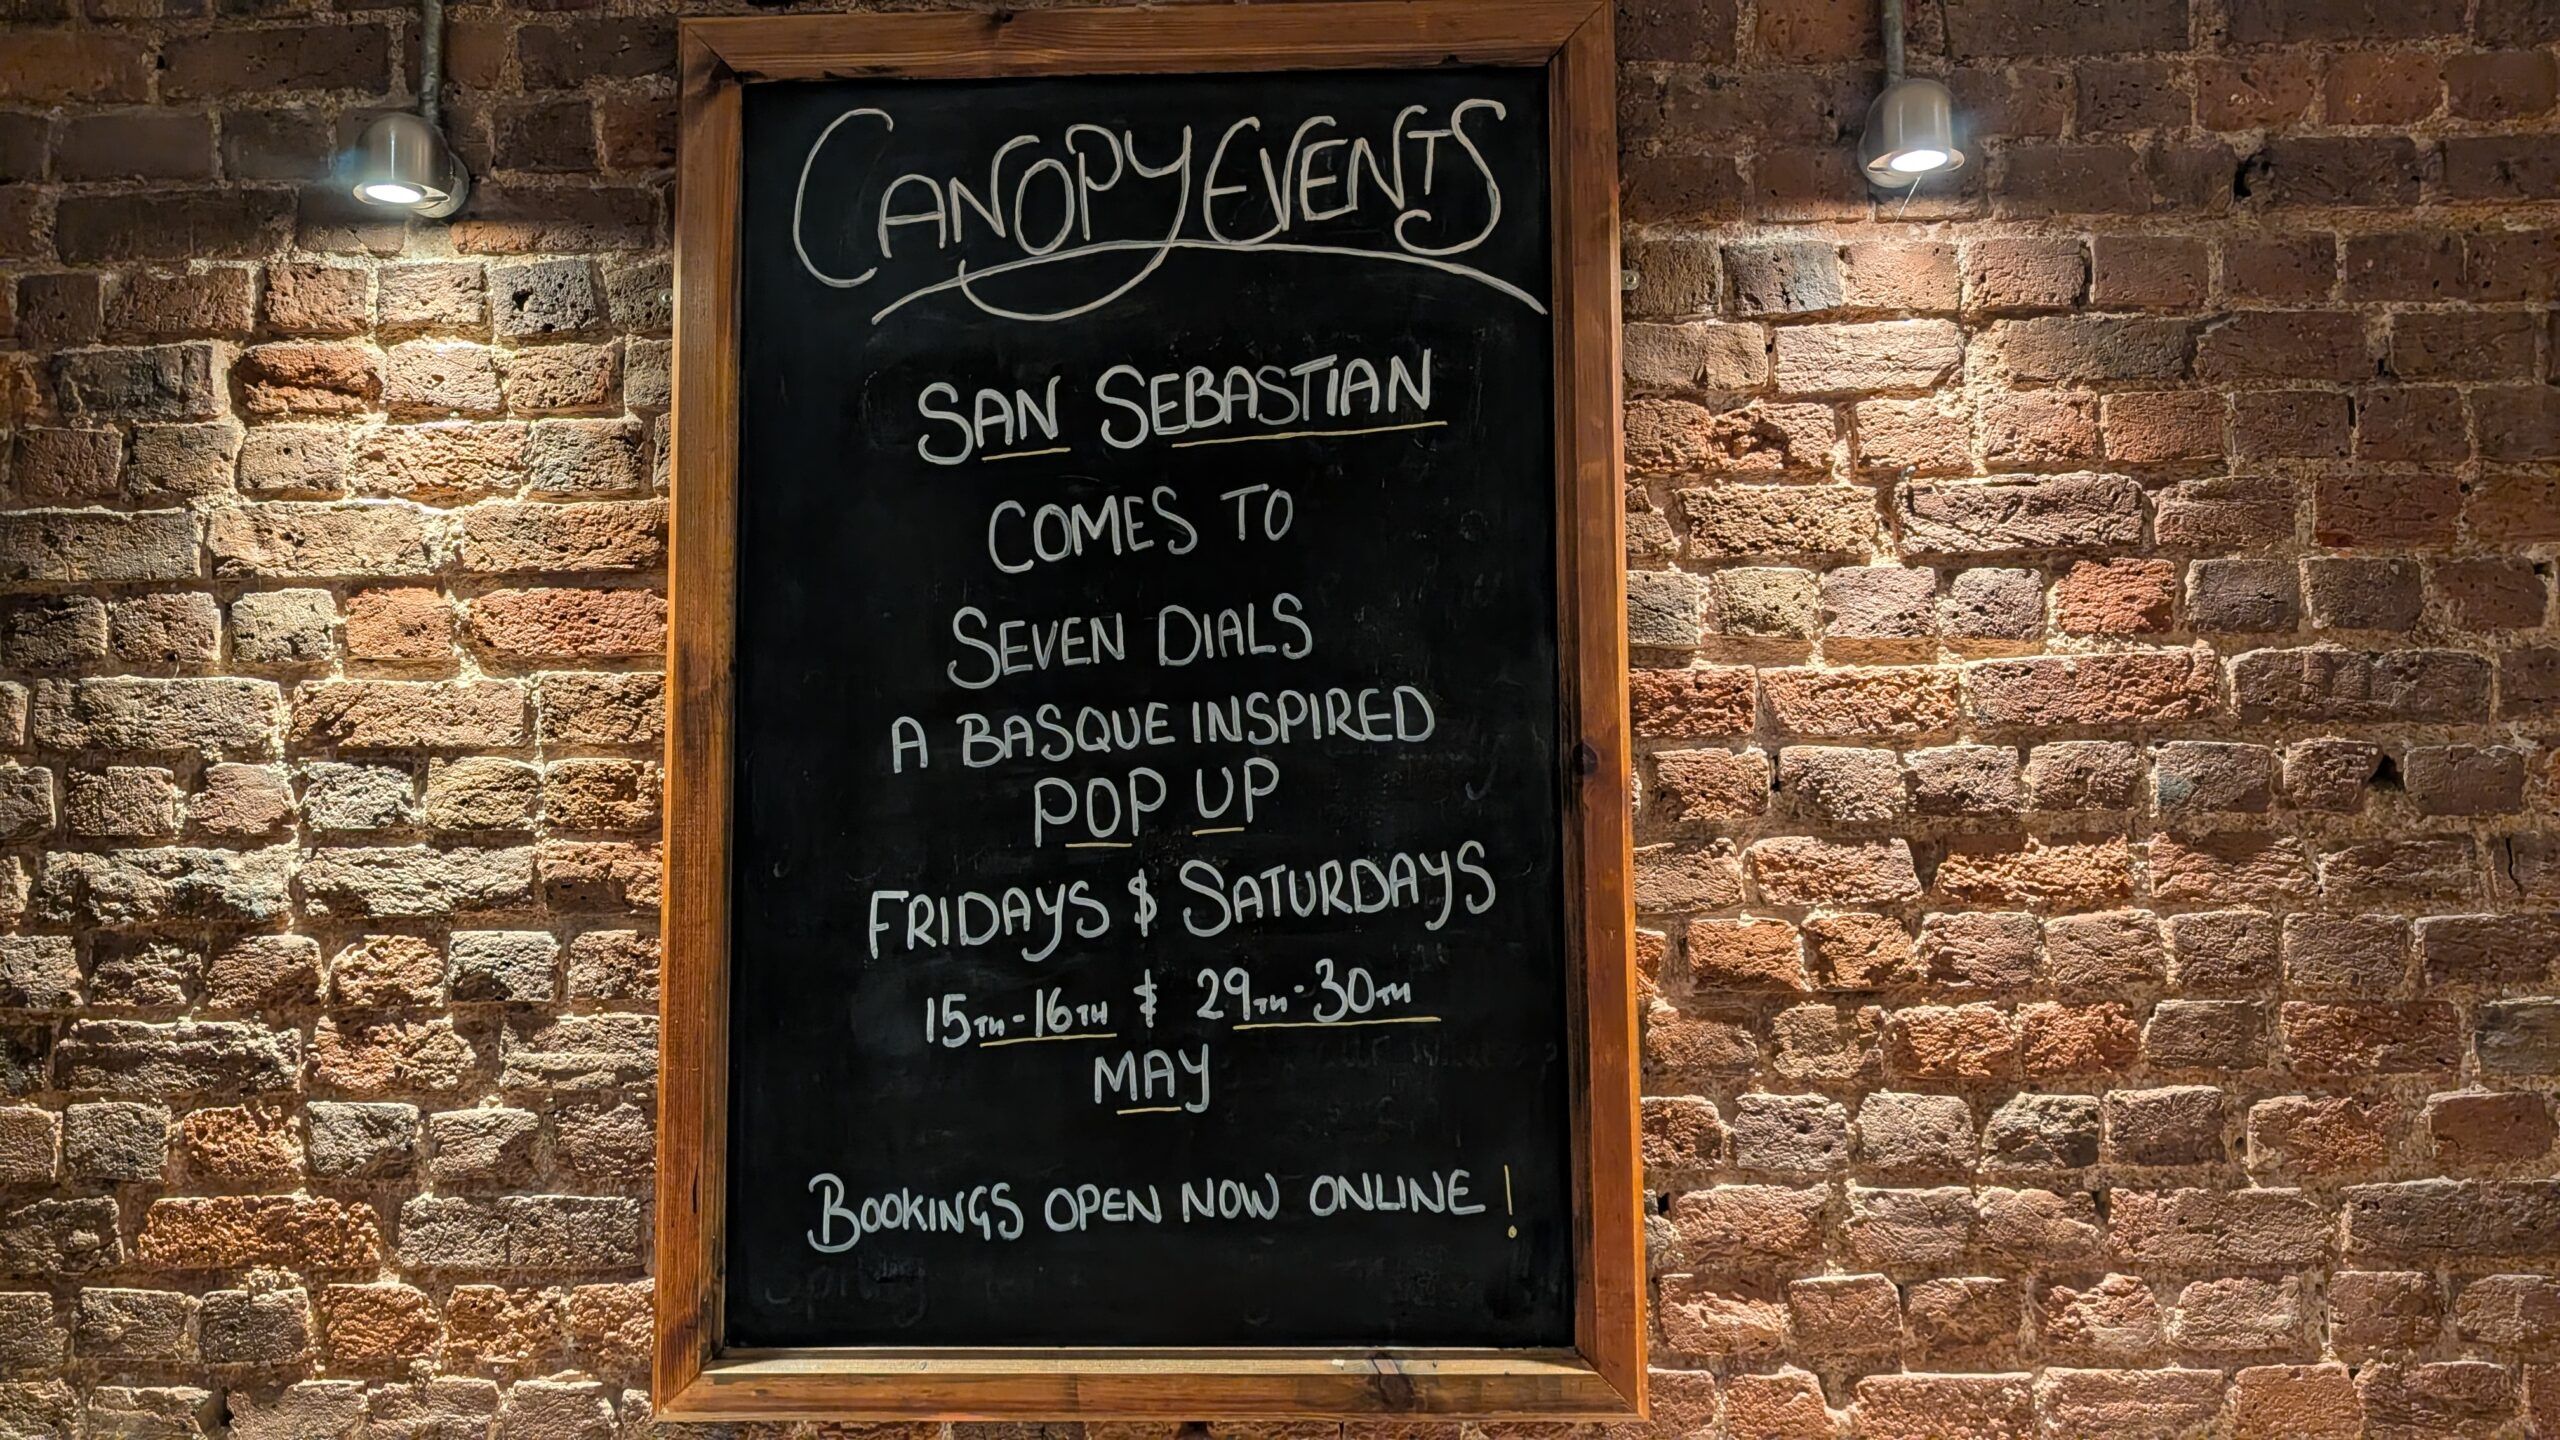 CANOPY EVENTS
SAN SEBASTIAN
COMES TO
SEVEN DIALS
A BASQUE INSPIRED
POP UP
FRIDAYS & SATURDAYS
15TH-16TH & 29TH-30TH
MAY
BOOKINGS OPEN NOW ONLINE!